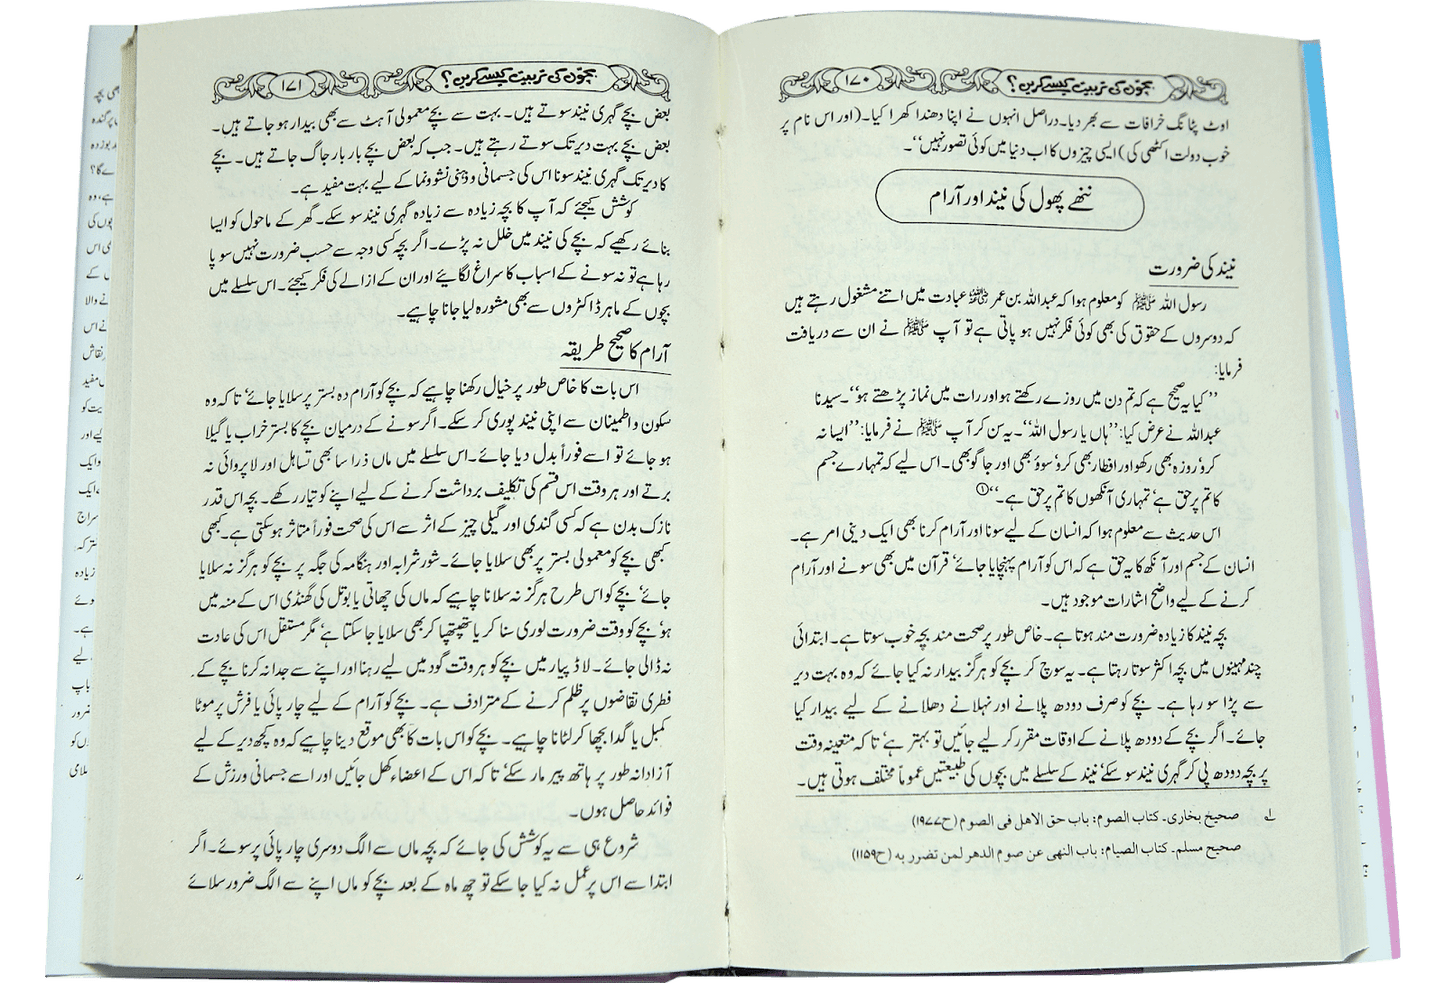 بچّوں کی تربیت کیسے کریں؟ ۱۷۰
اوٹ پٹانگ خرافات سے بھر دیا۔ دراصل انہوں نے اپنا دھندا کھرا کیا۔ (اور اس نام پر
خوب دولت اکٹھی کی) ایسی چیزوں کا اب دنیا میں کوئی تصور نہیں‘‘۔
ننھے پھول کی نیند اور آرام
نیند کی ضرورت
رسول اللہ ﷺ کو معلوم ہوا کہ عبداللہ بن عمر ﷺ عبادت میں اتنے مشغول رہتے ہیں
کہ دوسروں کے حقوق کی بھی کوئی فکر نہیں ہو پاتی ہے تو آپ ﷺ نے ان سے دریافت
فرمایا:
’’کیا یہ صحیح ہے کہ تم دن میں روزے رکھتے ہو اور رات میں نماز پڑھتے ہو‘‘۔ سیدنا
عبداللہ نے عرض کیا: ’’ہاں یا رسول اللہ‘‘۔ یہ سن کر آپ ﷺ نے فرمایا: ’’ایسا نہ
کرو‘ روزہ بھی رکھو اور افطار بھی کرو‘ سوؤ بھی اور جاگو بھی۔ اس لیے کہ تمہارے جسم
کا تم پر حق ہے‘ تمہاری آنکھوں کا تم پر حق ہے۔‘‘①
اس حدیث سے معلوم ہوا کہ انسان کے لیے سونا اور آرام کرنا بھی ایک دینی امر ہے۔
انسان کے جسم اور آنکھ کا یہ حق ہے کہ اس کو آرام پہنچایا جائے‘ قرآن میں بھی سونے اور آرام
کرنے کے لیے واضح اشارات موجود ہیں۔
بچہ نیند کا زیادہ ضرورت مند ہوتا ہے۔ خاص طور پر صحت مند بچہ خوب سوتا ہے۔ ابتدائی
چند مہینوں میں بچہ اکثر سوتا رہتا ہے۔ یہ سوچ کر بچے کو ہرگز بیدار نہ کیا جائے کہ وہ بہت دیر
سے پڑا سو رہا ہے۔ بچے کو صرف دودھ پلانے اور نہلانے دھلانے کے لیے بیدار کیا
جائے۔ اگر بچے کے دودھ پلانے کے اوقات مقرر کر لیے جائیں تو بہتر ہے‘ تا کہ متعینہ وقت
پر بچہ دودھ پی کر گہری نیند سو سکے‘ نیند کے سلسلے میں بچوں کی طبیعتیں عموماً مختلف ہوتی ہیں۔
۱ صحیح بخاری۔ کتاب الصوم: باب حق الاهل فی الصوم (ح۱۹۷۷)
صحیح مسلم۔ کتاب الصیام: باب النهی عن صوم الدهر لمن تضرر به (ح۱۱۵۹)
بچّوں کی تربیت کیسے کریں؟ ۱۷۱
بعض بچے گہری نیند سوتے ہیں۔ بہت سے بچے معمولی آہٹ سے بھی بیدار ہو جاتے ہیں۔
بعض بچے بہت دیر تک سوتے رہتے ہیں۔ جب کہ بعض بچے بار بار جاگ جاتے ہیں۔ بچے
کا دیر تک گہری نیند سونا اس کی جسمانی و ذہنی نشوونما کے لیے بہت مفید ہے۔
کوشش کیجئے کہ آپ کا بچہ زیادہ سے زیادہ گہری نیند سو سکے۔ گھر کے ماحول کو ایسا
بنائے رکھیے کہ بچے کی نیند میں خلل نہ پڑے۔ اگر بچہ کسی وجہ سے حسب ضرورت نہیں سو پا
رہا ہے تو نہ سونے کے اسباب کا سراغ لگائیے اور ان کے ازالے کی فکر کیجئے۔ اس سلسلے میں
بچوں کے ماہر ڈاکٹروں سے بھی مشورہ لیا جانا چاہیے۔
آرام کا صحیح طریقہ
اس بات کا خاص طور پر خیال رکھنا چاہیے کہ بچے کو آرام دہ بستر پر سلایا جائے‘ تا کہ وہ
سکون و اطمینان سے اپنی نیند پوری کر سکے۔ اگر سونے کے درمیان بچے کا بستر خراب یا گیلا
ہو جائے تو اسے فوراً بدل دیا جائے۔ اس سلسلے میں ماں ذرا سا بھی تساہل اور لاپروائی نہ
برتے اور ہر وقت اس قسم کی تکلیف برداشت کرنے کے لیے اپنے کو تیار رکھے۔ بچہ اس قدر
نازک بدن ہے کہ کسی گندی اور گیلی چیز کے اثر سے اس کی صحت فوراً متاثر ہو سکتی ہے۔ کبھی
کبھی بچے کو معمولی بستر پر بھی سلایا جائے۔ شور شرابہ اور ہنگامہ کی جگہ پر بچے کو ہرگز نہ سلایا
جائے‘ بچے کو اس طرح ہرگز نہ سلانا چاہیے کہ ماں کی چھاتی یا بوتل کی گھنڈی اس کے منہ میں
ہو‘ بچے کو وقت ضرورت لوری سنا کر یا تھپتھپا کر بھی سلایا جا سکتا ہے‘ مگر مستقل اس کی عادت
نہ ڈالی جائے۔ لاڈ پیار میں بچے کو ہر وقت گود میں لیے رہنا اور اپنے سے جدا نہ کرنا بچے کے
فطری تقاضوں پر ظلم کرنے کے مترادف ہے۔ بچے کو آرام کے لیے چار پائی یا فرش پر موٹا
کمبل یا گدا بچھا کر لٹانا چاہیے۔ بچے کو اس بات کا بھی موقع دینا چاہیے کہ وہ کچھ دیر کے لیے
آزادانہ طور پر ہاتھ پیر مار سکے‘ تا کہ اس کے اعضاء کھل جائیں اور اسے جسمانی ورزش کے
فوائد حاصل ہوں۔
شروع ہی سے یہ کوشش کی جائے کہ بچہ ماں سے الگ دوسری چار پائی پر سوئے۔ اگر
ابتدا سے اس پر عمل نہ کیا جا سکے تو چھ ماہ کے بعد بچے کو ماں اپنے سے الگ ضرور سلائے